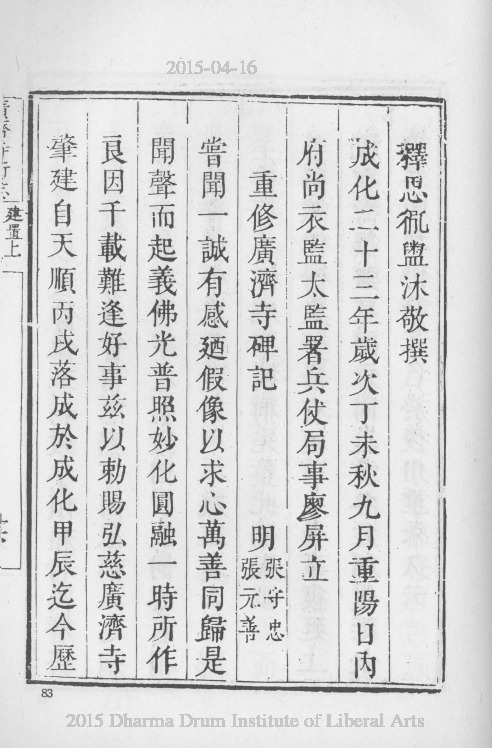 2015-04-16
釋思𧙗盥沐敬撰
成化二十三年歲次丁未秋九月重陽日內
府尚衣監太監署兵仗局事廖屏立
重修廣濟寺碑記 明 張守忠 張元善
嘗聞一誠有感廼假像以求心萬善同歸是
聞聲而起義佛光普照妙化圓融一時所作
良因千載難逢好事茲以勅賜弘慈廣濟寺
肇建自天順丙戌落成於成化甲辰迄今歷
建置上
83
2015 Dharma Drum Institute of Liberal Arts